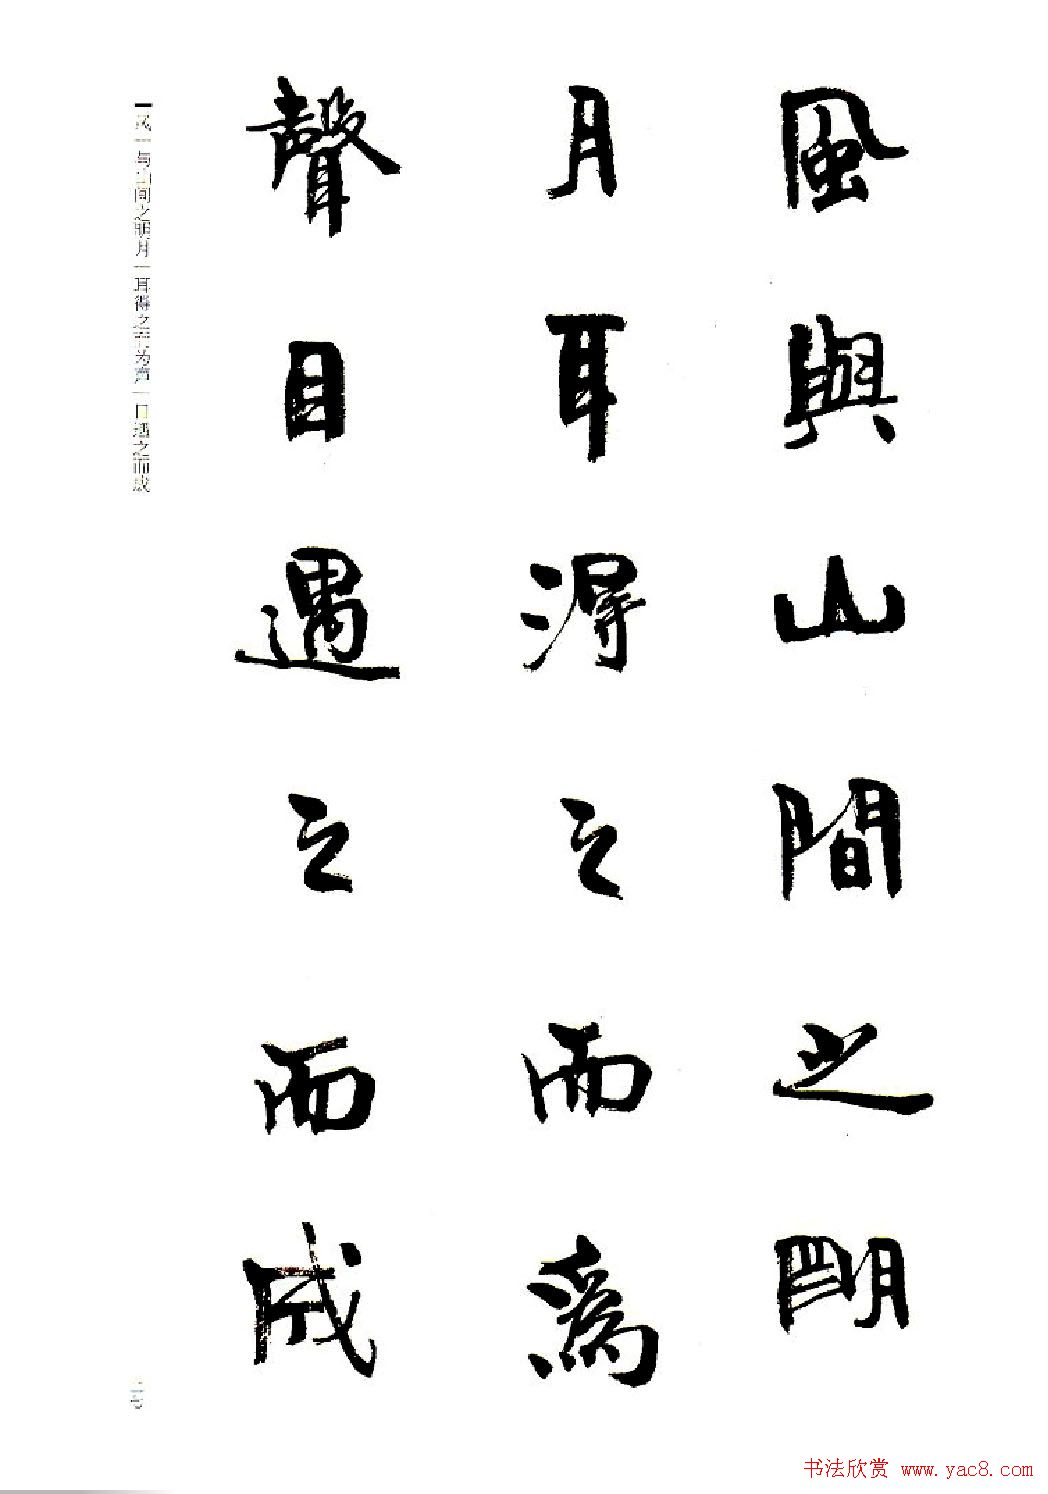 風與山間之明
月耳得之而為
聲目遇之而成
风 与山间之明月 耳得之而为声 目遇之而成
二七
书法欣赏 www.yac8.com